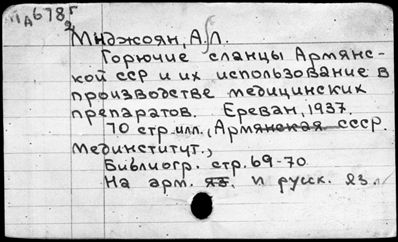 11A678г
2
Мнджоян, А. Л.
Горючие сланцы Армянс-
кой ССР и их использование в
производстве медицинских
препаратов. Ереван, 1937.
70 стр. илл., Армянская СССР.
Мединститут.,
Библиогр. стр. 69-70
На арм. яз. и русск. яз.